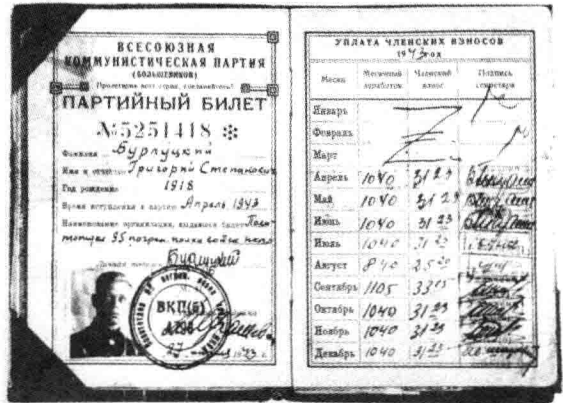 ВСЕСОЮЗНАЯ
КОММУНИСТИЧЕСКАЯ ПАРТИЯ
(БОЛЬШЕВИКОВ)
Пролетарии всех стран, соединяйтесь!
ПАРТИЙНЫЙ БИЛЕТ
№5251418
Фамилия Бурлуцкий
Имя и отчество Григорий Степанович
Год рождения 1918
Время вступления в партию Апрель 1943
Наименование организации, выдавшей билет Поли
тотдел 95 погран. полка войск НКВД
ВКП(б)
27 1943
УПЛАТА ЧЛЕНСКИХ ВЗНОСОВ
1943 год
Месяц Месячный заработок Членский взнос Подпись секретаря
Январь
Февраль
Март
Апрель 1040 31 23
Май 1040 31 23
Июнь 1040 31 23
Июль 1040 31 23
Август 840 25 20
Сентябрь 1105 33 05
Октябрь 1040 31 23
Ноябрь 1040 31 23
Декабрь 1040 31 23